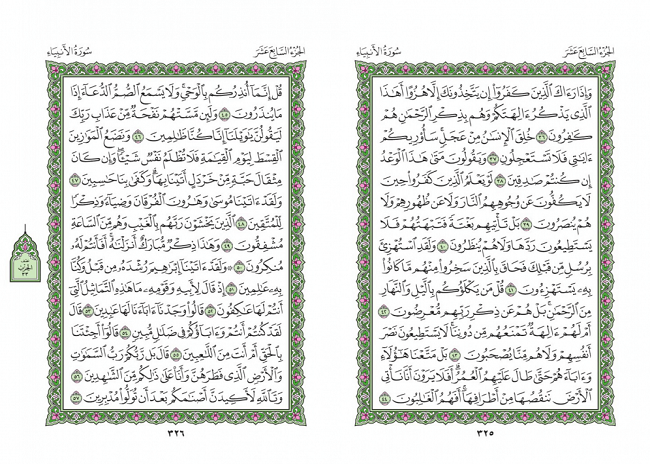 الجزء السابع عشر
سورة الأنبياء
وَإِذَا رَءَاكَ ٱلَّذِينَ كَفَرُوٓا۟ إِن يَتَّخِذُونَكَ إِلَّا هُزُوًا أَهَٰذَا
ٱلَّذِى يَذْكُرُ ءَالِهَتَكُمْ وَهُم بِذِكْرِ ٱلرَّحْمَٰنِ هُمْ
كَٰفِرُونَ ٣٦ خُلِقَ ٱلْإِنسَٰنُ مِنْ عَجَلٍ سَأُو۟رِيكُمْ
ءَايَٰتِى فَلَا تَسْتَعْجِلُونِ ٣٧ وَيَقُولُونَ مَتَىٰ هَٰذَا ٱلْوَعْدُ
إِن كُنتُمْ صَٰدِقِينَ ٣٨ لَوْ يَعْلَمُ ٱلَّذِينَ كَفَرُوا۟ حِينَ
لَا يَكُفُّونَ عَن وُجُوهِهِمُ ٱلنَّارَ وَلَا عَن ظُهُورِهِمْ وَلَا
هُمْ يُنصَرُونَ ٣٩ بَلْ تَأْتِيهِم بَغْتَةً فَتَبْهَتُهُمْ فَلَا
يَسْتَطِيعُونَ رَدَّهَا وَلَا هُمْ يُنظَرُونَ ٤٠ وَلَقَدِ ٱسْتُهْزِئَ
بِرُسُلٍ مِّن قَبْلِكَ فَحَاقَ بِٱلَّذِينَ سَخِرُوا۟ مِنْهُم مَّا كَانُوا۟
بِهِۦ يَسْتَهْزِءُونَ ٤١ قُلْ مَن يَكْلَؤُكُم بِٱلَّيْلِ وَٱلنَّهَارِ
مِنَ ٱلرَّحْمَٰنِ بَلْ هُمْ عَن ذِكْرِ رَبِّهِم مُّعْرِضُونَ ٤٢
أَمْ لَهُمْ ءَالِهَةٌ تَمْنَعُهُم مِّن دُونِنَا لَا يَسْتَطِيعُونَ نَصْرَ
أَنفُسِهِمْ وَلَا هُم مِّنَّا يُصْحَبُونَ ٤٣ بَلْ مَتَّعْنَا هَٰٓؤُلَآءِ
وَءَابَآءَهُمْ حَتَّىٰ طَالَ عَلَيْهِمُ ٱلْعُمُرُ أَفَلَا يَرَوْنَ أَنَّا نَأْتِى
ٱلْأَرْضَ نَنقُصُهَا مِنْ أَطْرَافِهَآ أَفَهُمُ ٱلْغَٰلِبُونَ ٤٤
٣٢٥
الجزء السابع عشر
سورة الأنبياء
قُلْ إِنَّمَآ أُنذِرُكُم بِٱلْوَحْىِ وَلَا يَسْمَعُ ٱلصُّمُّ ٱلدُّعَآءَ إِذَا
مَا يُنذَرُونَ ٤٥ وَلَئِن مَّسَّتْهُمْ نَفْحَةٌ مِّنْ عَذَابِ رَبِّكَ
لَيَقُولُنَّ يَٰوَيْلَنَآ إِنَّا كُنَّا ظَٰلِمِينَ ٤٦ وَنَضَعُ ٱلْمَوَٰزِينَ
ٱلْقِسْطَ لِيَوْمِ ٱلْقِيَٰمَةِ فَلَا تُظْلَمُ نَفْسٌ شَيْـًٔا وَإِن كَانَ
مِثْقَالَ حَبَّةٍ مِّنْ خَرْدَلٍ أَتَيْنَا بِهَا وَكَفَىٰ بِنَا حَٰسِبِينَ ٤٧
وَلَقَدْ ءَاتَيْنَا مُوسَىٰ وَهَٰرُونَ ٱلْفُرْقَانَ وَضِيَآءً وَذِكْرًا
لِّلْمُتَّقِينَ ٤٨ ٱلَّذِينَ يَخْشَوْنَ رَبَّهُم بِٱلْغَيْبِ وَهُم مِّنَ ٱلسَّاعَةِ
مُشْفِقُونَ ٤٩ وَهَٰذَا ذِكْرٌ مُّبَارَكٌ أَنزَلْنَٰهُ أَفَأَنتُمْ لَهُۥ
مُنكِرُونَ ٥٠ وَلَقَدْ ءَاتَيْنَآ إِبْرَٰهِيمَ رُشْدَهُۥ مِن قَبْلُ وَكُنَّا
بِهِۦ عَٰلِمِينَ ٥١ إِذْ قَالَ لِأَبِيهِ وَقَوْمِهِۦ مَا هَٰذِهِ ٱلتَّمَاثِيلُ ٱلَّتِىٓ
أَنتُمْ لَهَا عَٰكِفُونَ ٥٢ قَالُوا۟ وَجَدْنَآ ءَابَآءَنَا لَهَا عَٰبِدِينَ ٥٣ قَالَ
لَقَدْ كُنتُمْ أَنتُمْ وَءَابَآؤُكُمْ فِى ضَلَٰلٍ مُّبِينٍ ٥٤ قَالُوٓا۟ أَجِئْتَنَا
بِٱلْحَقِّ أَمْ أَنتَ مِنَ ٱللَّٰعِبِينَ ٥٥ قَالَ بَل رَّبُّكُمْ رَبُّ ٱلسَّمَٰوَٰتِ
وَٱلْأَرْضِ ٱلَّذِى فَطَرَهُنَّ وَأَنَا۠ عَلَىٰ ذَٰلِكُم مِّنَ ٱلشَّٰهِدِينَ ٥٦
وَتَٱللَّهِ لَأَكِيدَنَّ أَصْنَٰمَكُم بَعْدَ أَن تُوَلُّوا۟ مُدْبِرِينَ ٥٧
٣٢٦